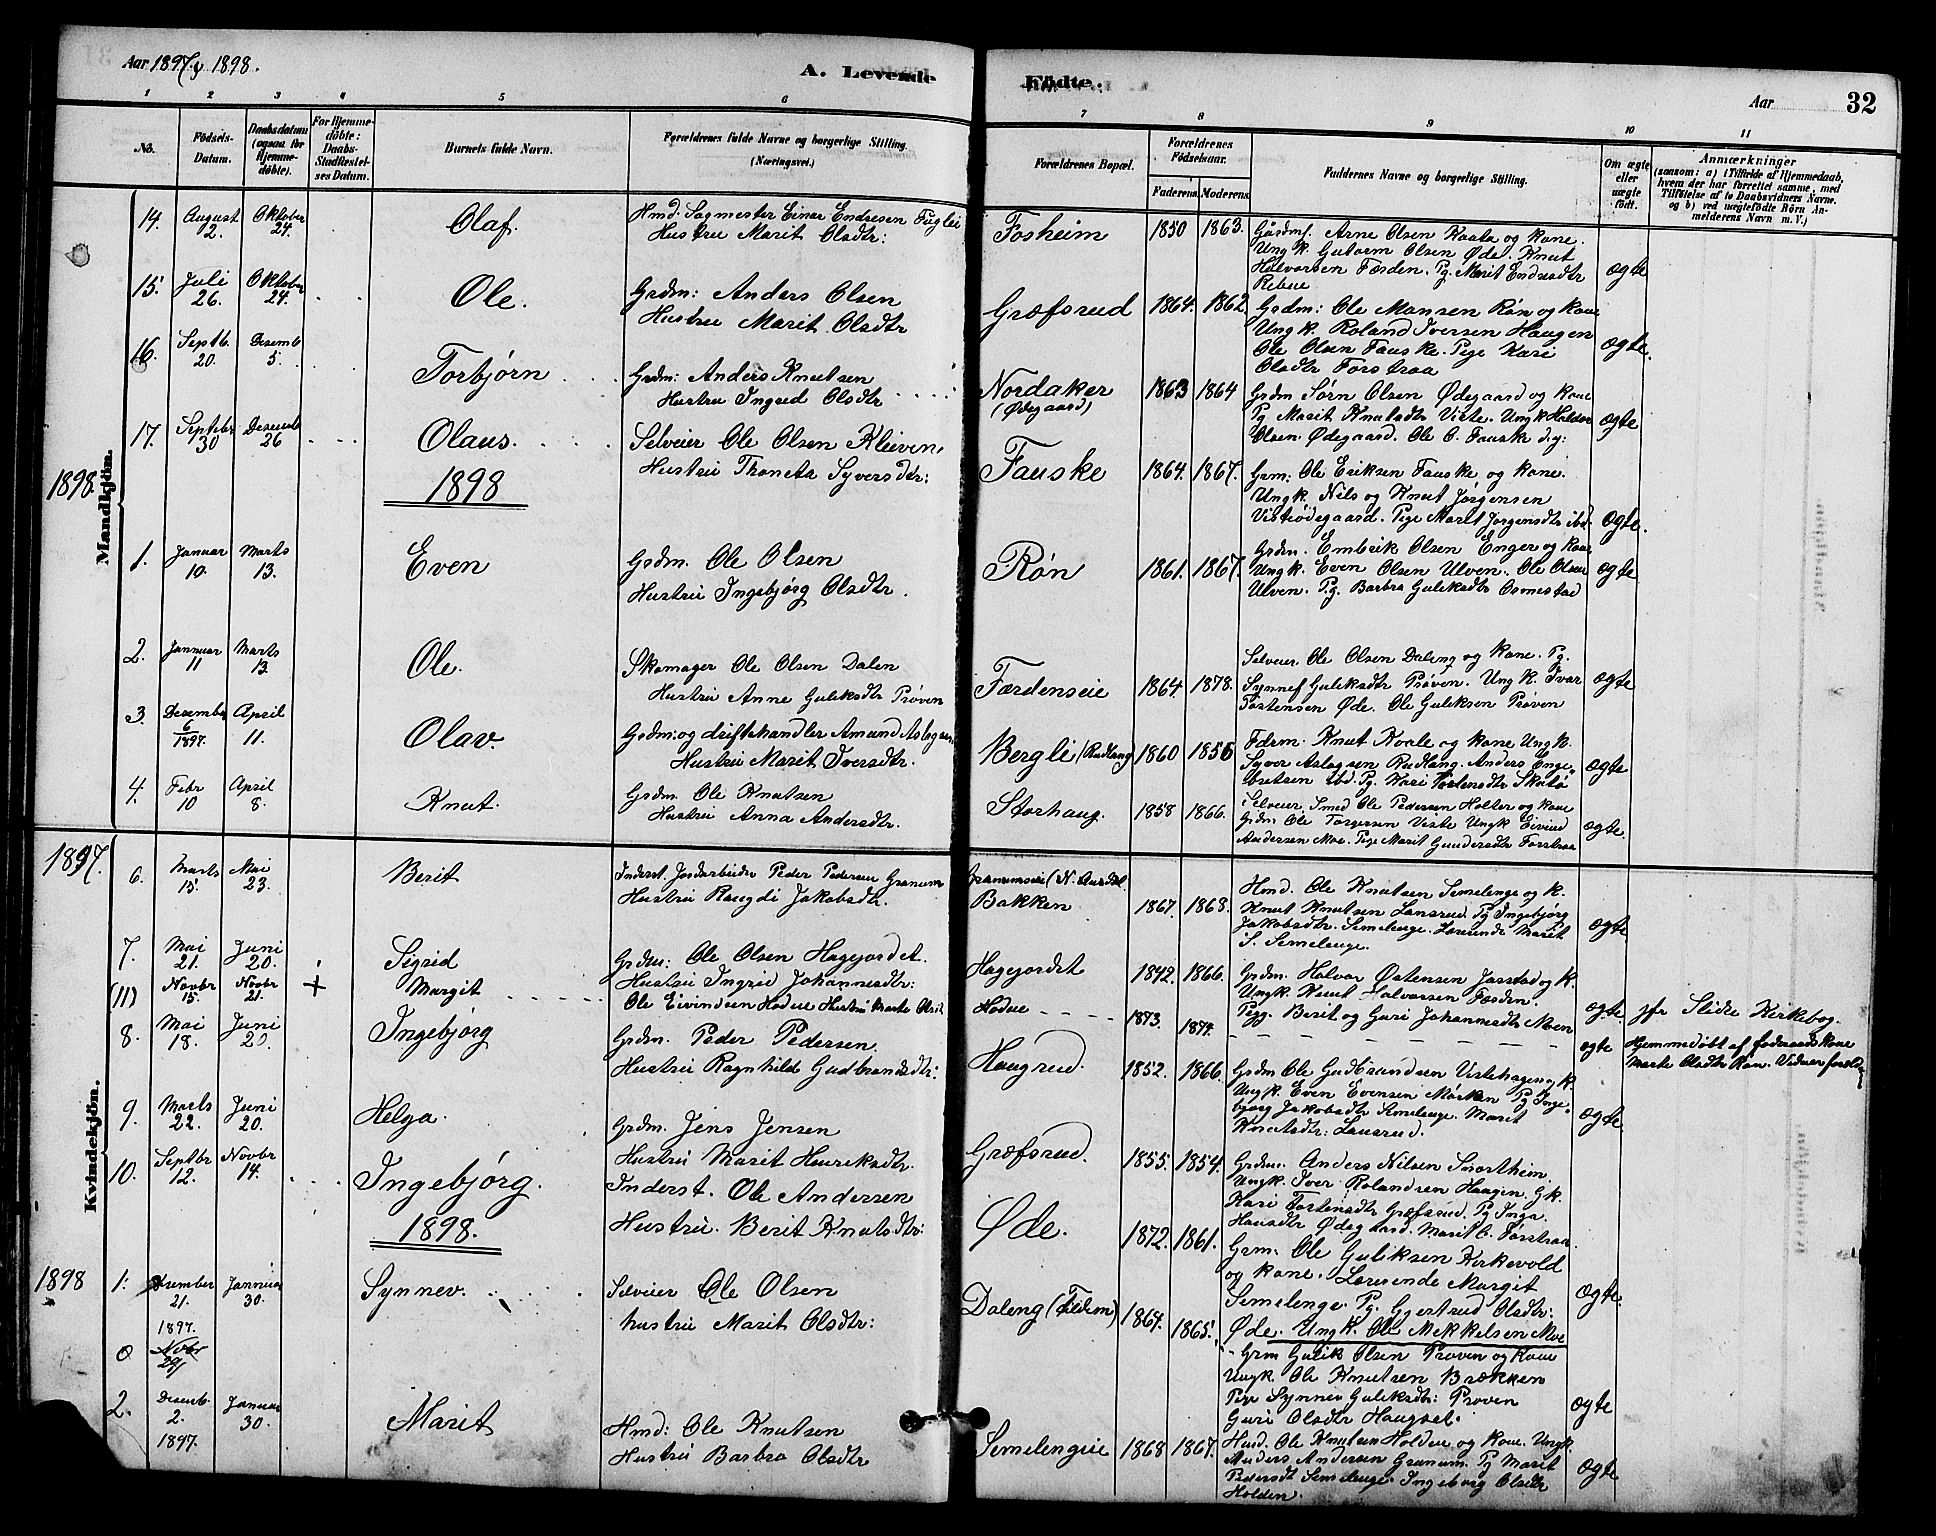 Aar 1897 & 1898.
A. Levende
Födte.
Aar
32
1 2 3 4 5 6 7 8 9 10 11
No.
Födsels-
Datum.
Daabsdatum
(ogsaa for
Hjemme-
döbte).
For Hjemme-
döbte:
Daabs-
Stadfæstel-
ses Datum.
Barnets fulde Navn.
Forældrenes fulde Navne og borgerlige Stilling.
(Næringsvei.)
Forældrenes Bopæl.
Forældrenes
Födselsaar.
Faderens. Moderens.
Faddernes Navne og borgerlige Stilling.
Om ægte
eller
uægte
födt.
Anmærkninger
(saasom: a) i Tilfælde af Hjemmedaab,
hvem der har forrettet samme, med
Tilföielse af to Daabsvidners Navne.
og b) ved uægtefödte Börn An-
melderens Navn m. V.)
Mandkjön.
14. August 2. Oktober 24. Olaf. Hmd. Sagmester Einar Endresen Fuglei
Hustru Marit Olsdtr:
Fosheim 1850 1863. Gaardmd. Arne Olsen Kaata og kone.
Ungk. Gutorm Olsen Øde. Knut
Halvorsen Færden. Pg. Marit Endresdtr
ægte
15. Juli 26. Oktober 24. Ole. Grdm: Anders Olsen
Hustru Marit Olsdtr
Græfsrud 1864. 1862. Grdm: Ole Monsen Røn og kone
Ungk. Roland Iversen Haugen
Ole Olsen Fauske. Pige Kari
Olsdtr Forstraa
ægte.
16. Septb. 20. Desemb 5. Torbjørn Grdm: Anders Knutsen
Hustru Ingrid Olsdtr
Nordaker
(Ødegaard)
1863 1864 Grdm Sørn Olsen Ødegaard og kone
Pg Marit Knutsdtr Viste. Ungk Halvor
Olsen Ødegaard. Ole O. Fauske d.y:
ægte
17. Septbr 30 Desemb 26 Olaus. Selveier Ole Olsen Kleiven
Hustru Thoneta Syversdtr:
Fauske 1864. 1867. Grm: Ole Eriksen Fauske, og kone.
Ungk. Nils og Knut Jörgensen
Visteødegaard. Pige Marit Jörgensdtr ibd.
ægte.
1898
1898.
1. Januar 10. Marts 13. Even Grdm. Ole Olsen
Hustru Ingebjørg Olsdtr.
Røn 1861. 1867. Grdm. Embrik Olsen Enger og kone
Ungk. Even Olsen Ulven. Ole Olsen
Ulven. Pg. Barbra Guliksdtr Osmestad
ægte
2. Januar 11 Marts 13. Ole. Skomager Ole Olsen Dalen
Hustru Anne Guliksdtr Prøven
Færdenseie 1864 1878. Selveier Ole Olsen Daleng og kone. Pg.
Synnef Guliksdtr Prøven. Ungk. Ivar
Tostensen Øde. Ole Guliksen Prøven
ægte
3. Desember 6 1897. April 11. Olav. Grdm: og driftehandler Amund Aslagsen
Hustru Marit Iversdtr.
Bergli (Rudlang) 1860 1856 Fdrm. Knut Kvale og kone Ungk.
Syver Aslagsen Rudlang. Anders Enge-
bretsen ibd. Pg. Kari Tostensdtr
ægte
4. Febr 10 April 8. Knut. Grdm. Ole Knutsen
Hustru Anna Andersdtr.
Storhaug. 1858 1866. Selveier Smed Ole Pedersen Holter og kone
Grdm Ole Torgersen Viste Ungk Eivind
Andersen Moe. Pige Marit Gundersdtr Forstraa
ægte.
Kvindekjön.
1897.
6. Marts 15. Mai 23. Berit Inderst, Jordarbeider Peder Pedersen Granum
Hustru Raugdi Jakobsdtr.
Granumseie (N. Aurdal
Bakken 1867. 1868. Hmd. Ole Knutsen Semelenge og K.
Knut Knutsen Lansrud. Pg Ingebjørg
Jakobsdtr Semelenge. Læreinde Marit
S. Semelenge.
ægte
7. Mai 21. Juni 20. Sigrid Grdm: Ole Olsen Hagejordet.
Hustru Ingrid Johannesdtr:
Hagejordet 1842. 1866. Grdm. Halvor Østensen Jarstad og K.
Ungk. Knut Halvorsen Færden.
Pgg. Berit og Guri Johannesdtr Moen
ægte.
(11) Novbr 15. Novbr 21. + Margit Ole Eivindsen Hodne Hustru Marte Olsdtr
Hodne 1873. 1874. ægte jfr Slidre Kirkebog.
Hjemmedøbt af fodermandskone
Marte Olsdtr Røn. Vidner foreldre
8. Mai 18. Juni 20. Ingebjørg Grdm. Peder Pedersen.
Hustru Ragnhild Gudbrandsdtr:
Haugrud. 1852. 1866. Grdm Ole Gudbrandsen Vistehagen og K.
Ungk. Even Evensen Mørken Pg Inge-
bjørg Jakobsdtr Semelenge. Marit
Knutsdtr: Lansrud.
ægte
9. Marts 22. Juni 20. Helga Grdm. Jens Jensen
Hustru Marit Henriksdtr.
Græfsrud. 1855. 1854. Grdm. Anders Nilsen Snortheim.
Ungk. Iver Rolandsen Haagen. Gk.
Kari Tostensdtr Græfsrud. Pg Inga
Hansdtr Ødegaard. Marit O. Forstraa.
10. Septbr 12. Novbr 14. Ingebjørg. Inderst. Ole Andersen
Hustru. Berit Knutsdtr:
Øde. 1872. 1861. Grm. Ole Guliksen Kirkevold
og kone. Læreinde Margit
Semelenge. Pg. Gjertrud Olsdtr:
Øde. Ungk. Ole Mekkelsen Moe
ægte.
1898.
1898
1. Desember 21. 1897. Januar 30. Synnev. Selveier Ole Olsen
hustru Marit Olsdtr:
Daleng (Færden) 1864. 1865. Grm Gulik Olsen Prøven og kone
Ungk Ole Knutsen Brækken
Pige Synnev Guliksdtr: Prøven
Guri Olsdtr Haugset.
ægte
0 Novbr 29
2. Desemb. 2. 1897. Januar 30. Marit Hmd: Ole Knutsen
Hustru Barbra Olsdtr
Semelengeie 1868 1867. Hmd. Ole Knutsen Holden og kone. Ungk.
Anders Andersen Granum. Pg Marit
Pedersdt Semelenge. Ingeborg Olsdtr
Holden.
ægte